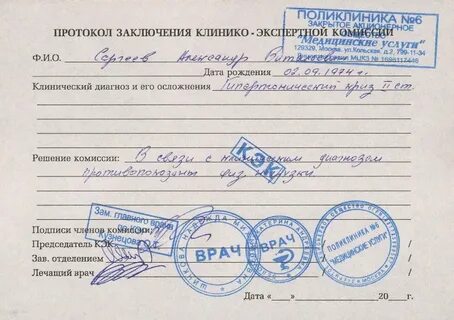 ПОЛИКЛИНИКА №6
ЗАКРЫТОЕ АКЦИОНЕРНОЕ
"Медицинские услуги"
129329, Москва, ул.Кольская, д.2, 799-11-34
МЦКЗ № 1698117446
ПРОТОКОЛ ЗАКЛЮЧЕНИЯ КЛИНИКО - ЭКСПЕРТНОЙ КОМИССИИ
Ф.И.О. Сергеев Александр
Дата рождения 02.09.1974 г.
Клинический диагноз и его осложнения Гипертонический криз II ст.
КЭК
Решение комиссии: В связи с клиническим диагнозом
противопоказаны физ. нагрузки.
Зам. главного врача
Кузнецова
Подписи членов комиссии:
Председатель КЭК
Зав. отделением
Лечащий врач
ВРАЧ
ВРАЧ
ПОЛИКЛИНИКА №6
"МЕДИЦИНСКИЕ УСЛУГИ"
Дата « » 20 г.